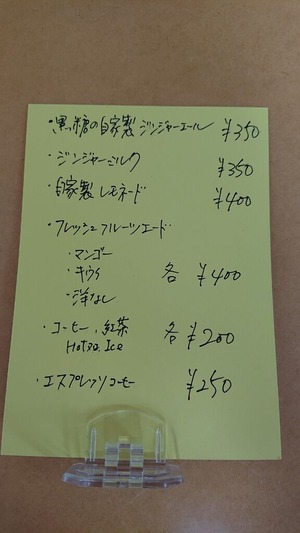 ・黒糖の自家製ジンジャーエール ¥350
・ジンジャーミルク ¥350
・自家製レモネード ¥400
・フレッシュフルーツエード
・マンゴー
・キウイ 各 ¥400
・洋なし
・コーヒー、紅茶 各 ¥200
Hot or Ice
・エスプレッソコーヒー ¥250